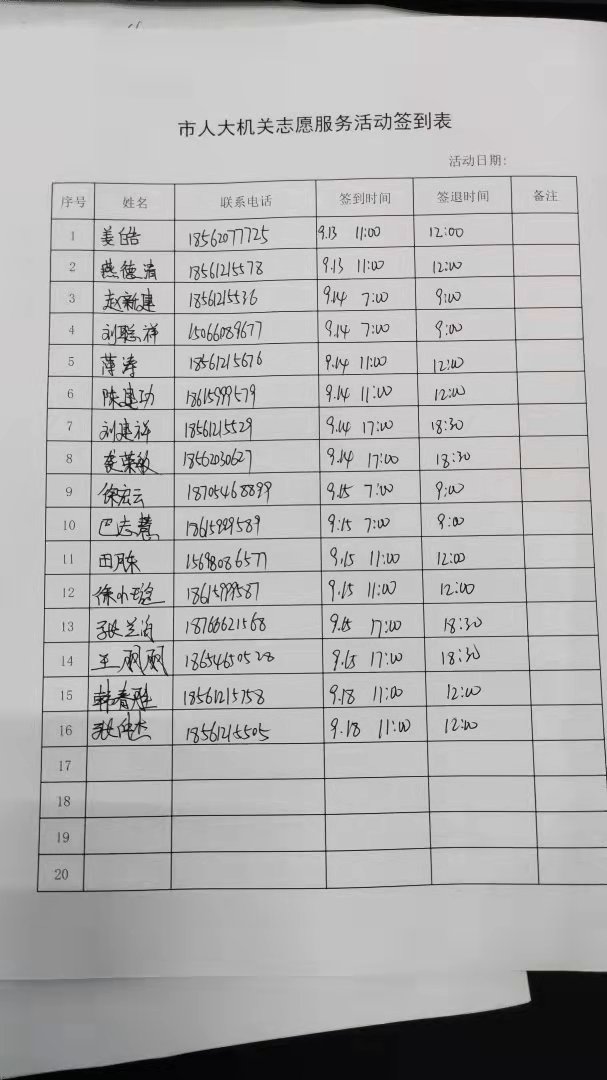 市人大机关志愿服务活动签到表
活动日期:
序号 姓名 联系电话 签到时间 签退时间 备注
1 姜皓 18562077725 9.13 11:00 12:00
2 燕德清 18561215578 9.13 11:00 12:00
3 赵新建 18561215536 9.14 7:00 9:00
4 刘聪祥 15066089677 9.14 7:00 9:00
5 薄涛 18561215676 9.14 11:00 12:00
6 陈建功 18615999579 9.14 11:00 12:00
7 刘建祥 18561215529 9.14 17:00 18:30
8 荣敏 18562030627 9.14 17:00 18:30
9 徐宏云 18705468899 9.15 7:00 9:00
10 巴志慧 18615999589 9.15 7:00 9:00
11 田 15698086577 9.15 11:00 12:00
12 徐小 18615999587 9.15 11:00 12:00
13 张兰 18766621568 9.15 17:00 18:30
14 王丽丽 18654650528 9.15 17:00 18:30
15 韩春胜 18561215758 9.18 11:00 12:00
16 杰 18561215505 9.18 11:00 12:00
17
18
19
20